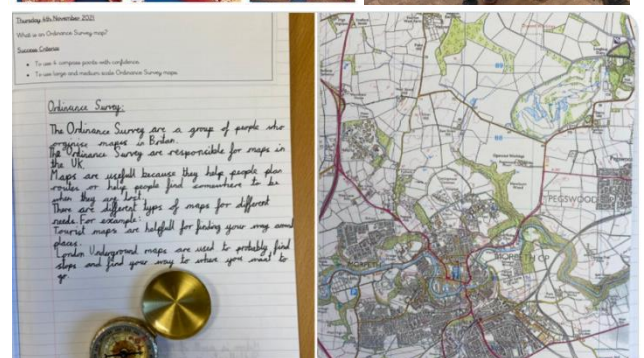 Thursday 4th November 2021
What is an Ordnance Survey map?
Success Criteria
To use 4 compass points with confidence.
To use large and medium scale Ordnance Survey maps.
Ordinance Survey:
The Ordinance Survey are a group of people who
orginise mapes in Britan.
The Ordinance Survey are responsible for maps in
the UK.
Maps are usefull because they help people plan
routes or help people find somewhere to be
when they are lost.
There are different types of maps for different
needs. For example:
Tourist maps are helpfull for finding your way around
places.
London Underground maps are used to probably find
stops and find your way to where you want to
go.
PEGSWOOD
MORPETH CP